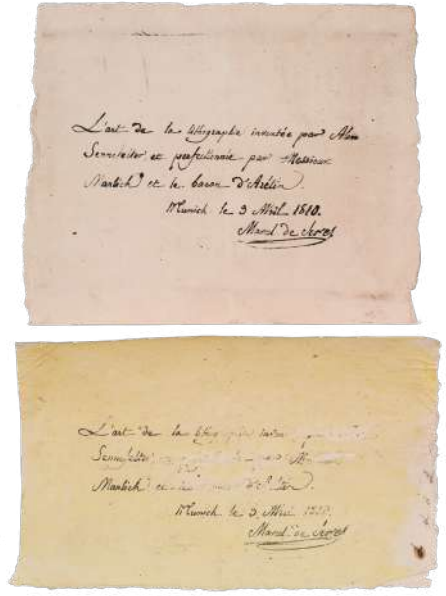 L'art de la lithographie inventée par Alois
Sennefelder et perfectionnée par Messieurs
Manlich et le baron d'Arétin.
Munich le 3 Avril 1810.
Marcel de Serres
L'art de la
Sennefelder
Manlich et
Munich le 3 Avril 1810.
Marcel de Serres